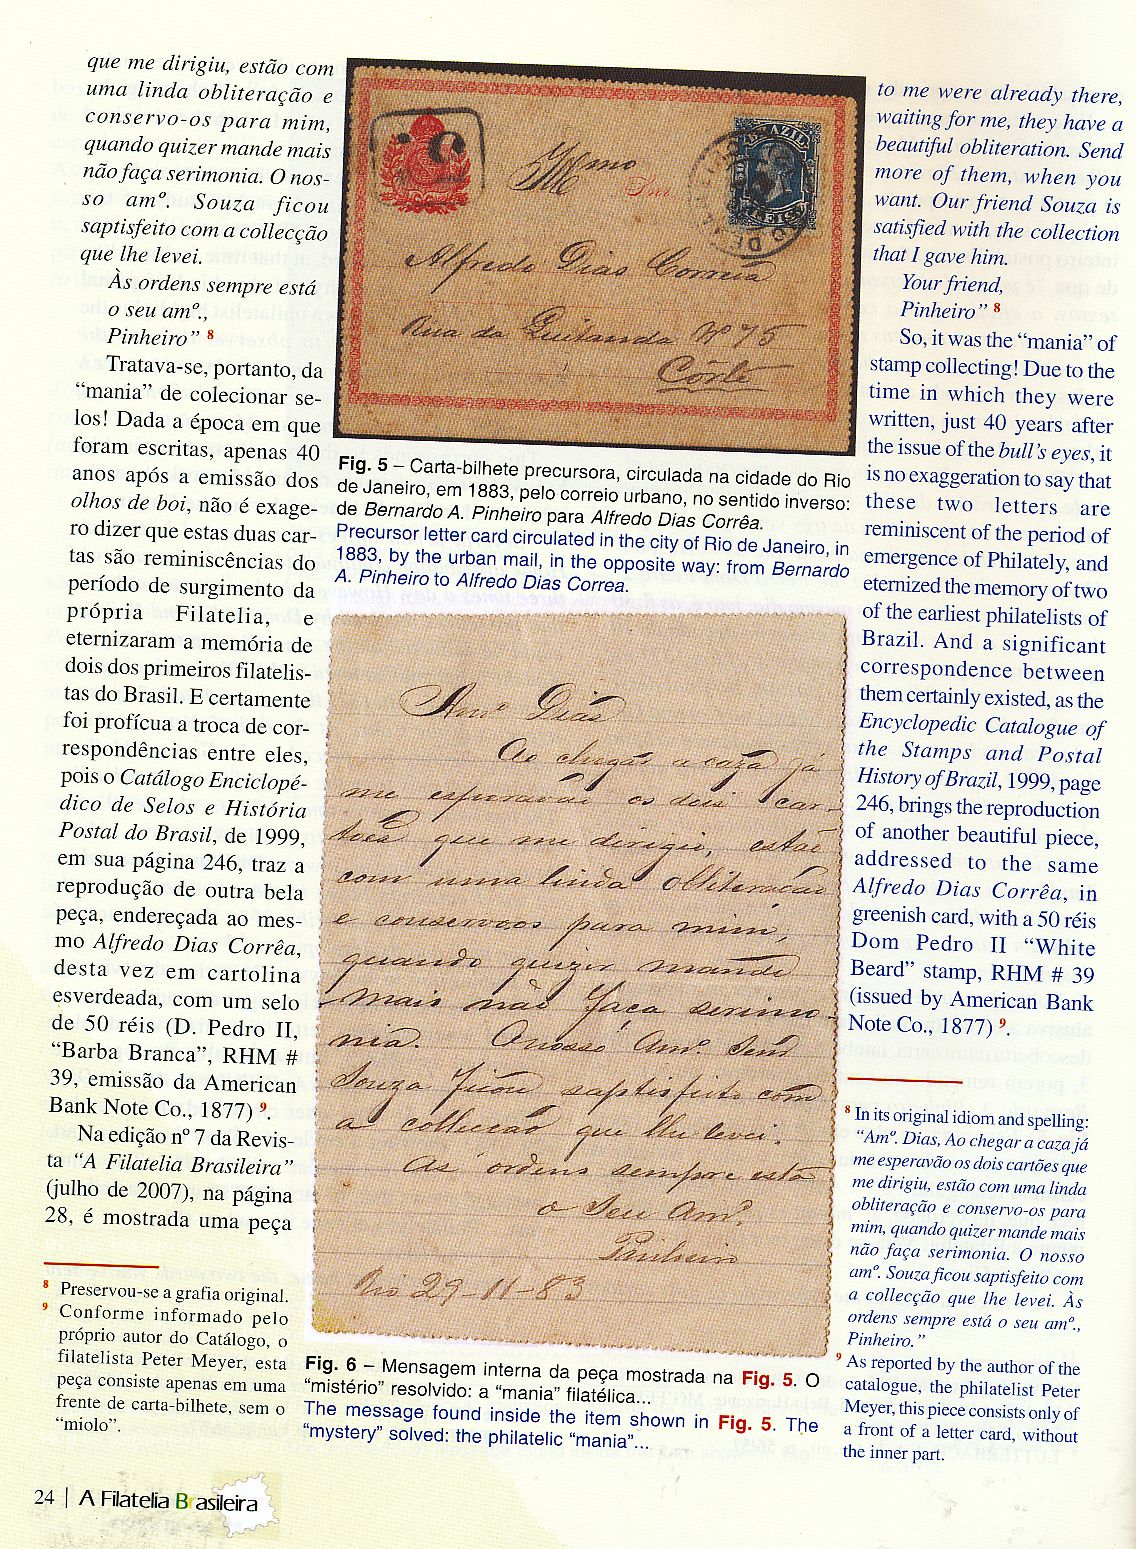 que me dirigiu, estão com
uma linda obliteração e
conservo-os para mim,
quando quizer mande mais
não faça serimonia. O nos-
so amº. Souza ficou
saptisfeito com a collecção
que lhe levei.
Às ordens sempre está
o seu amº.,
Pinheiro” 8
Tratava-se, portanto, da
“mania” de colecionar se-
los! Dada a época em que
foram escritas, apenas 40
anos após a emissão dos
olhos de boi, não é exage-
ro dizer que estas duas car-
tas são reminiscências do
período de surgimento da
própria Filatelia, e
eternizaram a memória de
dois dos primeiros filatelis-
tas do Brasil. E certamente
foi profícua a troca de cor-
respondências entre eles,
pois o Catálogo Enciclopé-
dico de Selos e História
Postal do Brasil, de 1999,
em sua página 246, traz a
reprodução de outra bela
peça, endereçada ao mes-
mo Alfredo Dias Corrêa,
desta vez em cartolina
esverdeada, com um selo
de 50 réis (D. Pedro II,
“Barba Branca”, RHM #
39, emissão da American
Bank Note Co., 1877) 9.
Na edição nº 7 da Revis-
ta “A Filatelia Brasileira”
(julho de 2007), na página
28, é mostrada uma peça
8 Preservou-se a grafia original.
9 Conforme informado pelo
próprio autor do Catálogo, o
filatelista Peter Meyer, esta
peça consiste apenas em uma
frente de carta-bilhete, sem o
“miolo”.
BRAZIL
Alfredo Dias Corrêa
Rua da Quitanda Nº 75
Côrte
Fig. 5 – Carta-bilhete precursora, circulada na cidade do Rio
de Janeiro, em 1883, pelo correio urbano, no sentido inverso:
de Bernardo A. Pinheiro para Alfredo Dias Corrêa.
Precursor letter card circulated in the city of Rio de Janeiro, in
1883, by the urban mail, in the opposite way: from Bernardo
A. Pinheiro to Alfredo Dias Correa.
Amº Dias
Ao chegar a caza já
me esperavão os dois car-
tões que me dirigiu, estão
com uma linda obliteração
e conservoos para mim,
quando quizer mande
mais não faça serimo-
nia. O nosso Amº.
Souza ficou saptisfeito com
a collecção que lhe levei.
As ordens sempre está
o seu Amº.
Pinheiro
Rio 29-11-83
Fig. 6 – Mensagem interna da peça mostrada na Fig. 5. O
“mistério” resolvido: a “mania” filatélica...
The message found inside the item shown in Fig. 5. The
“mystery” solved: the philatelic “mania”...
to me were already there,
waiting for me, they have a
beautiful obliteration. Send
more of them, when you
want. Our friend Souza is
satisfied with the collection
that I gave him.
Your friend,
Pinheiro” 8
So, it was the “mania” of
stamp collecting! Due to the
time in which they were
written, just 40 years after
the issue of the bull’s eyes, it
is no exaggeration to say that
these two letters are
reminiscent of the period of
emergence of Philately, and
eternized the memory of two
of the earliest philatelists of
Brazil. And a significant
correspondence between
them certainly existed, as the
Encyclopedic Catalogue of
the Stamps and Postal
History of Brazil, 1999, page
246, brings the reproduction
of another beautiful piece,
addressed to the same
Alfredo Dias Corrêa, in
greenish card, with a 50 réis
Dom Pedro II “White
Beard” stamp, RHM # 39
(issued by American Bank
Note Co., 1877) 9.
8 In its original idiom and spelling:
“Amº. Dias, Ao chegar a caza já
me esperavão os dois cartões que
me dirigiu, estão com uma linda
obliteração e conservo-os para
mim, quando quizer mande mais
não faça serimonia. O nosso
amº. Souza ficou saptisfeito com
a collecção que lhe levei. Às
ordens sempre está o seu amº.,
Pinheiro.”
9 As reported by the author of the
catalogue, the philatelist Peter
Meyer, this piece consists only of
a front of a letter card, without
the inner part.
24 | A Filatelia Brasileira